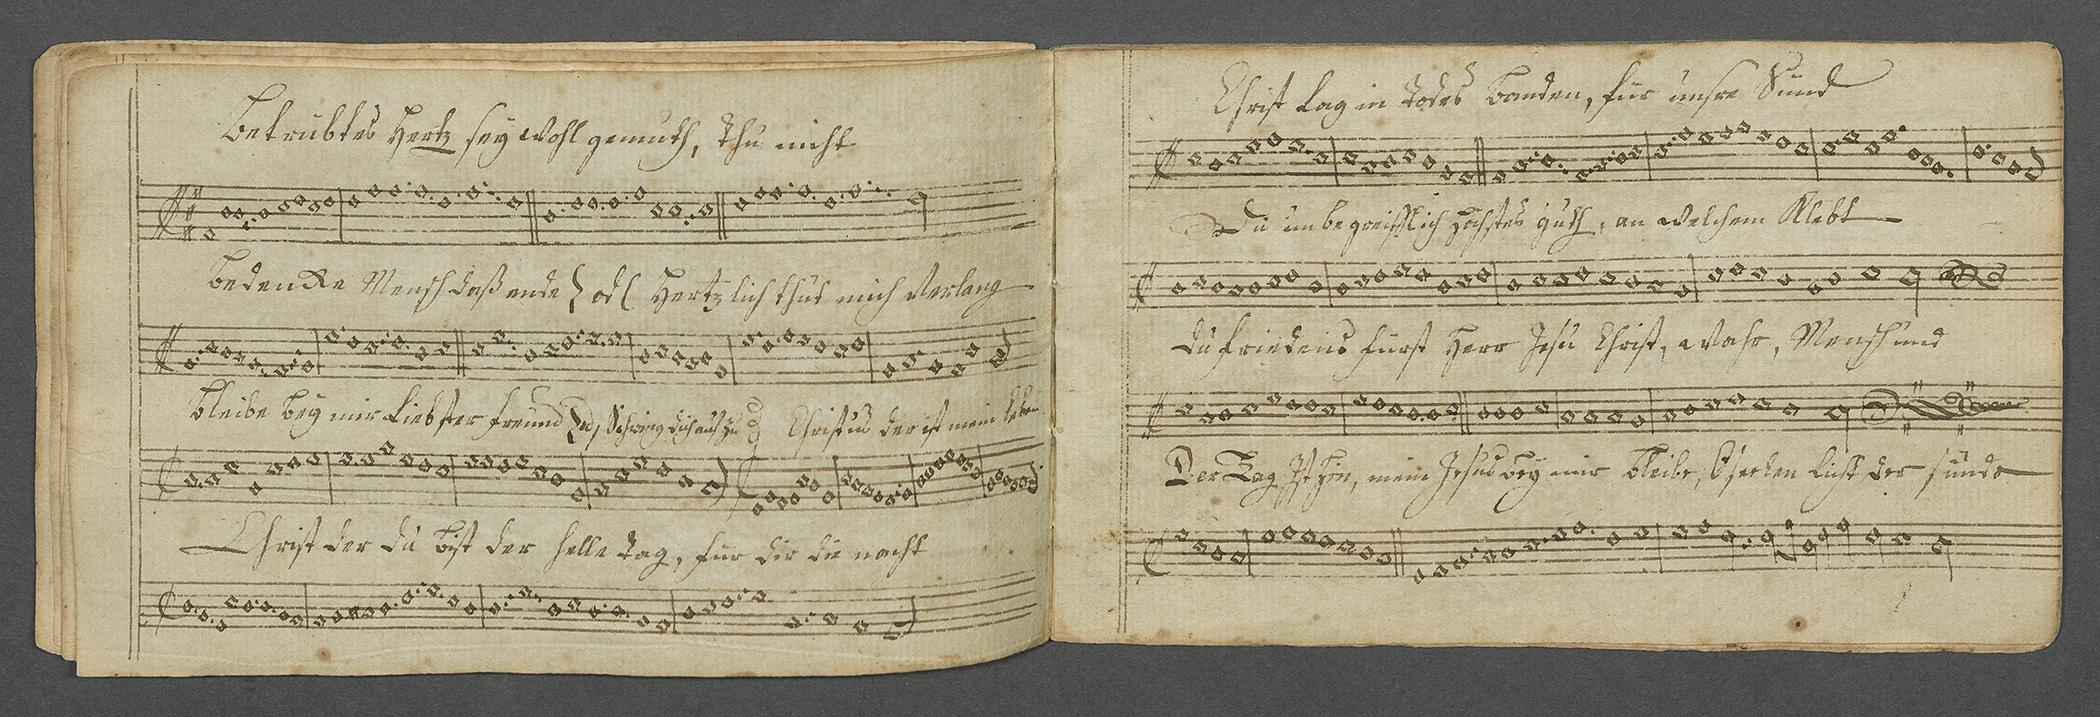 Betrübtes Hertz sey wohl gemuth, thu nicht
bedencke Mensch daß ende od Hertzlich thut mich Verlang
bleibe bey mir Liebster freund od, Schwing dich auf zu Christus der ist mein leben
Christ der du bist der helle tag, für dir die nacht
Christ lag in todes banden, für unsre Sünd
Du unbegreifflich höchstes guth, an welchem Klebt
du friedens fürst Herr Jesu Christ, wahr, Mensch und
Der Tag Ist hin, mein Jesus bey mir bleibe, O seelen licht der sünde